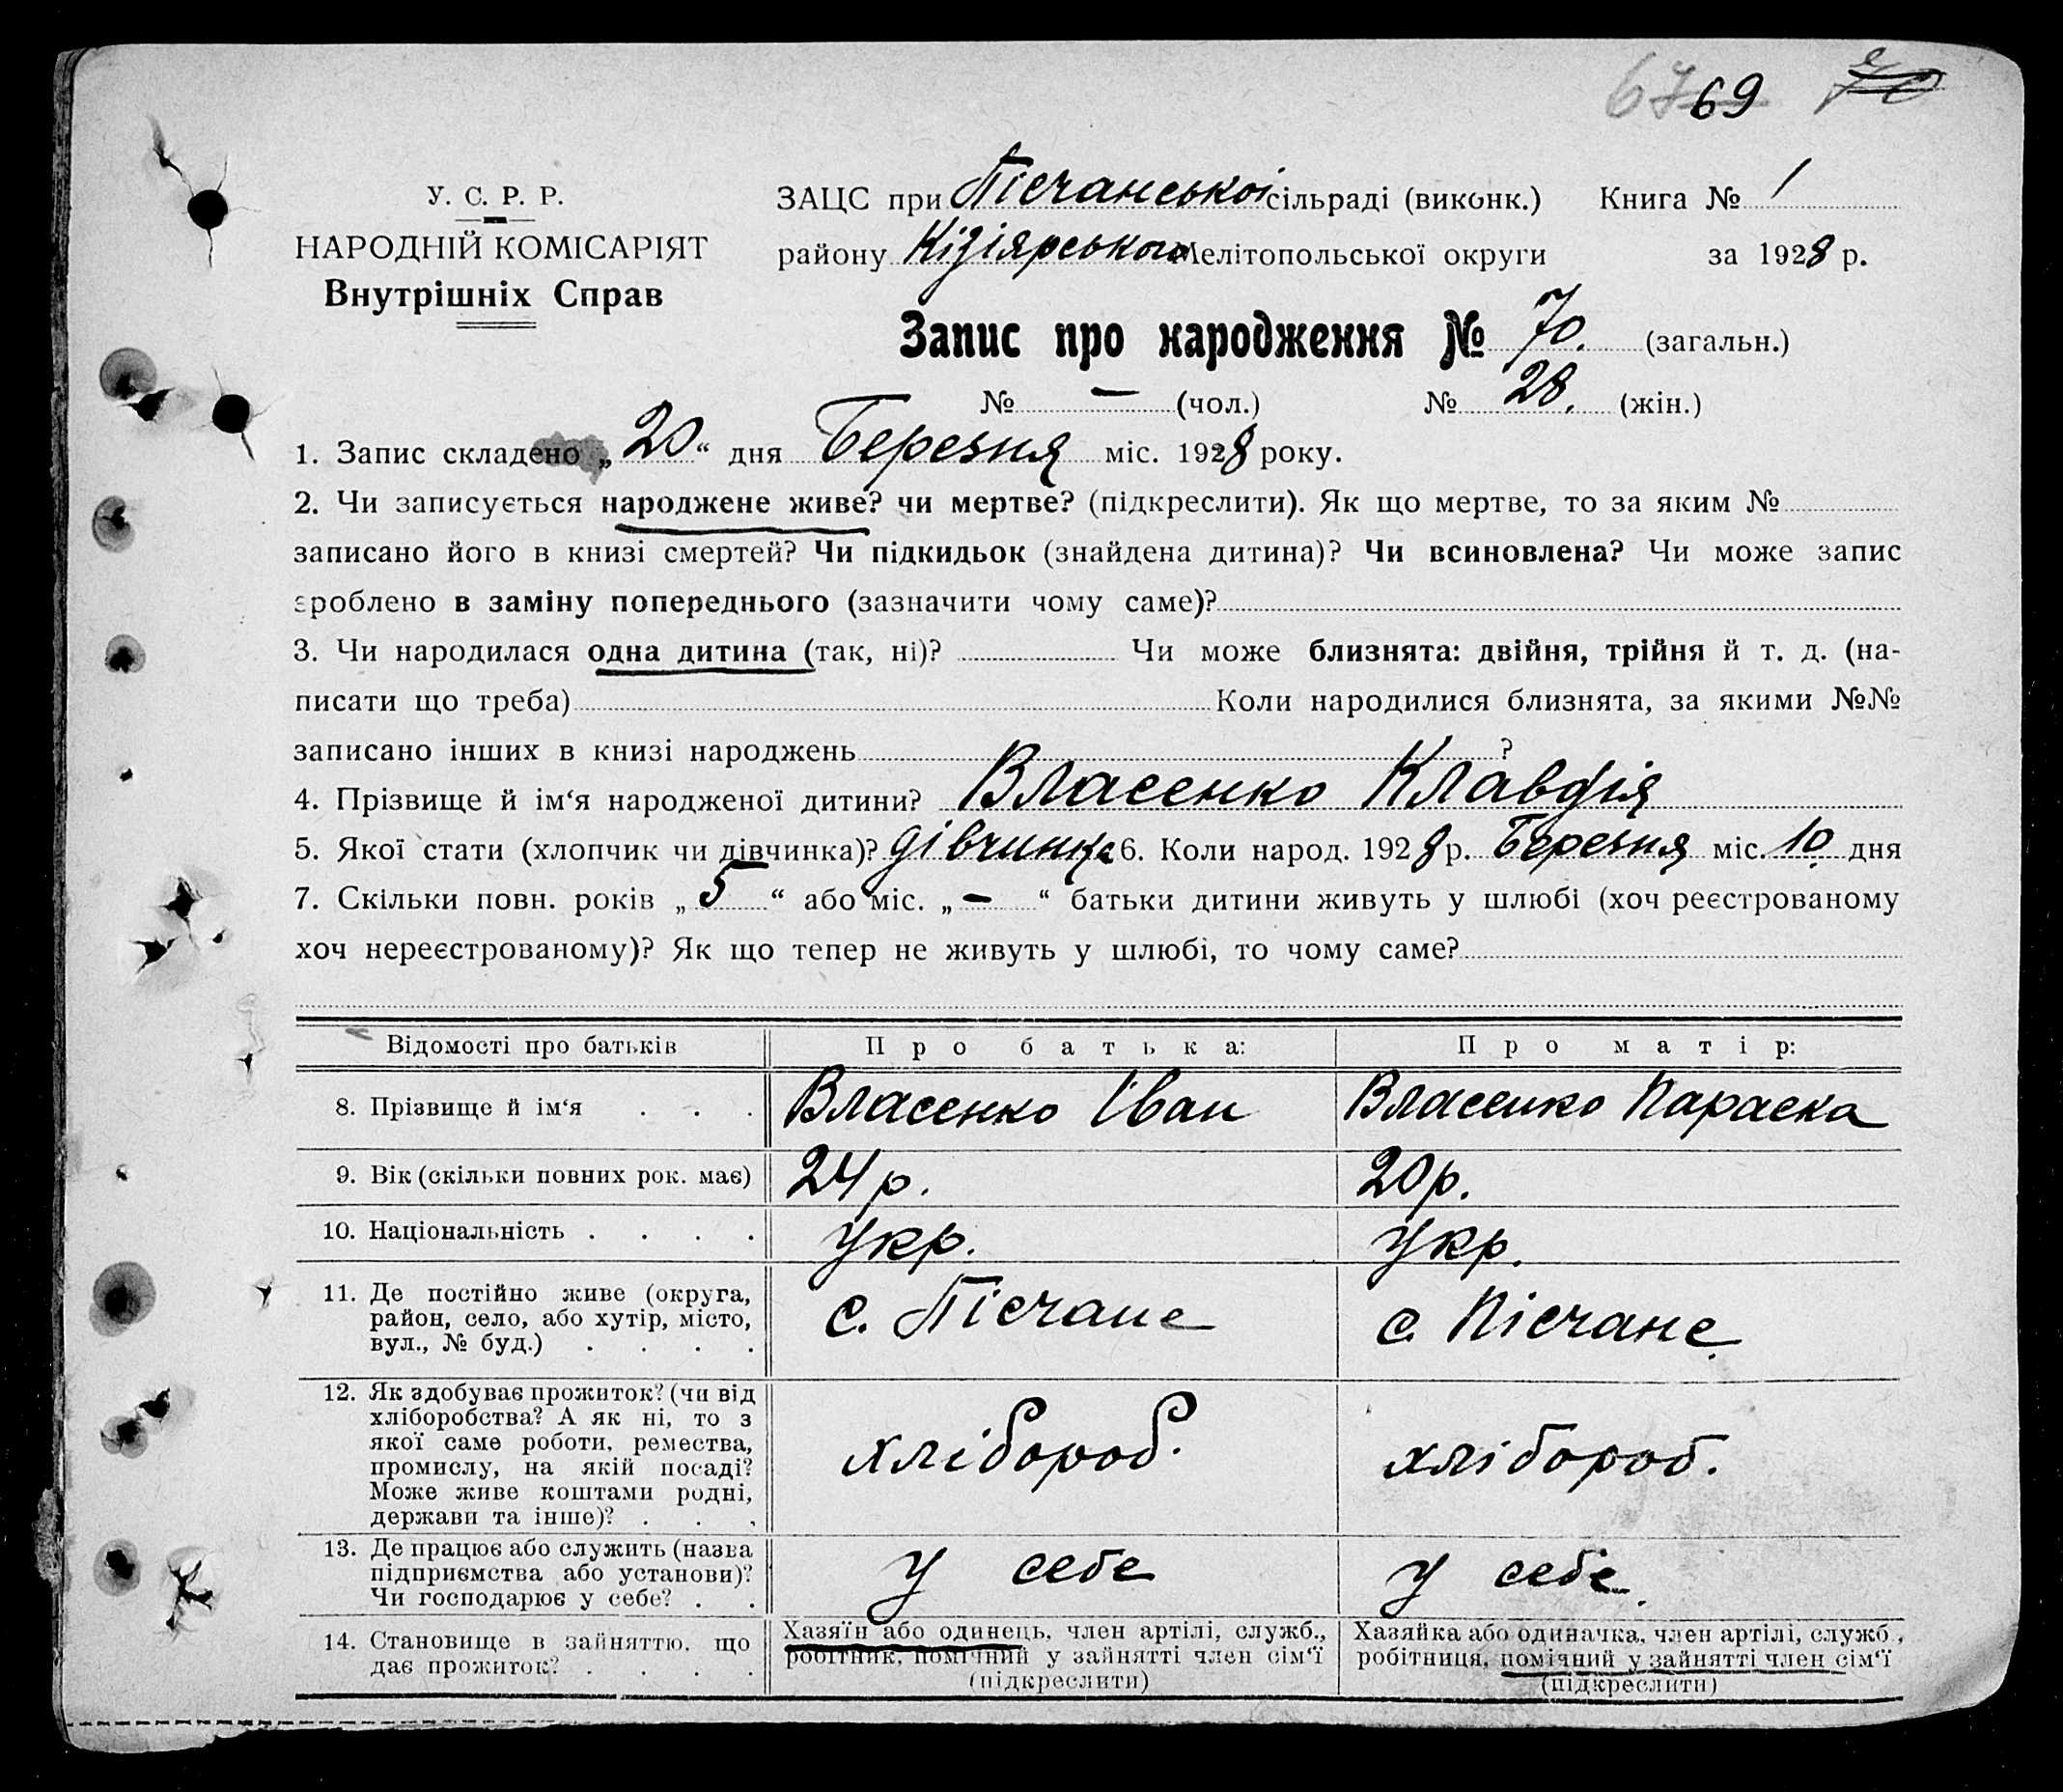 67 69 70
У. С. Р. Р.
НАРОДНІЙ КОМІСАРІЯТ
Внутрішніх Справ
ЗАЦС при Пісчанської сільраді (виконк.) Книга № 1
району Кізіярського Мелітопольської округи за 1928 р.
Запис про народження № 70. (загальн.)
№ — (чол.) № 28. (жін.)
1. Запис складено „20“ дня Березня міс. 1928 року.
2. Чи записується народжене живе? чи мертве? (підкреслити). Як що мертве, то за яким №
записано його в книзі смертей? Чи підкидьок (знайдена дитина)? Чи всиновлена? Чи може запис
зроблено в заміну попереднього (зазначити чому саме)?
3. Чи народилася одна дитина (так, ні)? Чи може близнята: двійня, трійня й т. д. (на-
писати що треба) Коли народилися близнята, за якими №№
записано інших в книзі народжень ?
4. Прізвище й ім‘я народженої дитини? Власенко Клавдія
5. Якої стати (хлопчик чи дівчинка)? дівчинка 6. Коли народ. 1928 р. Березня міс. 10 дня
7. Скільки повн. років „5“ або міс. „—“ батьки дитини живуть у шлюбі (хоч реєстрованому
хоч нереєстрованому)? Як що тепер не живуть у шлюбі, то чому саме?
Відомості про батьків Про батька: Про матір:
8. Прізвище й ім‘я . . . Власенко Іван Власенко Параска
9. Вік (скільки повних рок. має) 24 р. 20 р.
10. Національність . . . . Укр. Укр.
11. Де постійно живе (округа,
район, село, або хутір, місто,
вул., № буд.) . . . .
с. Пісчане с. Пісчане
12. Як здобуває прожиток? (чи від
хліборобства? А як ні, то з
якої саме роботи, ремества,
промислу, на якій посаді?
Може живе коштами родні,
держави та інше)? . . .
хлібороб. хлібороб.
13. Де працює або служить (назва
підприємства або установи)?
Чи господарює у себе? . .
у себе у себе.
14. Становище в зайняттю, що
дає прожиток? . . . .
Хазяїн або одинець, член артілі, служб.,
робітник, помічний у зайнятті член сім‘ї
(підкреслити)
Хазяйка або одиначка, член артілі, служб.,
робітниця, помічний у зайнятті член сім‘ї
(підкреслити)